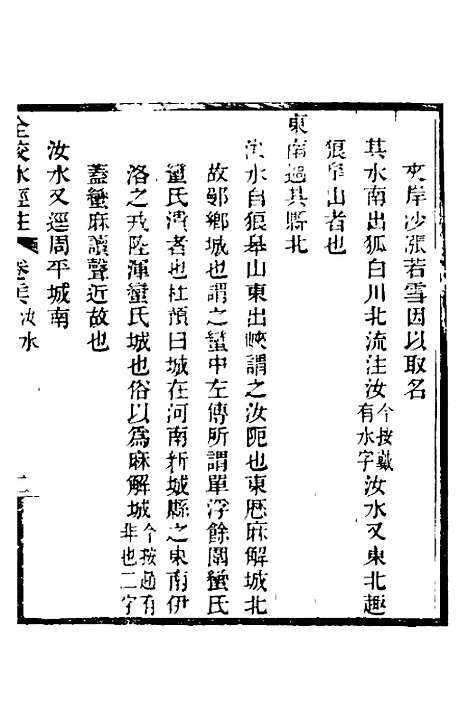 夾岸沙漲若雪因以取名
其水南出狐白川北流注汝今按戴有水字汝水又東北趣
狼皐山者也
東南過其縣北
汝水自狼皐山東出峽謂之汝阨也東歴麻解城北
故鄤鄉城也謂之蠻中左傳所謂單浮餘圍蠻氏
蠻氏潰者也杜預曰城在河南新城縣之東南伊
洛之戎陸渾蠻氏城也俗以爲麻解城今按趙有非也二字
蓋蠻麻讀聲近故也
汝水又逕周平城南
全校水經注 卷 汝水 二